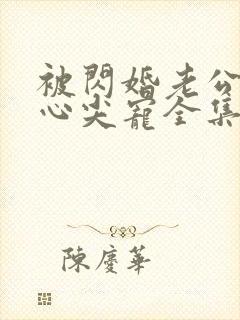 被閃婚老公
心尖寵全集
陳慶華